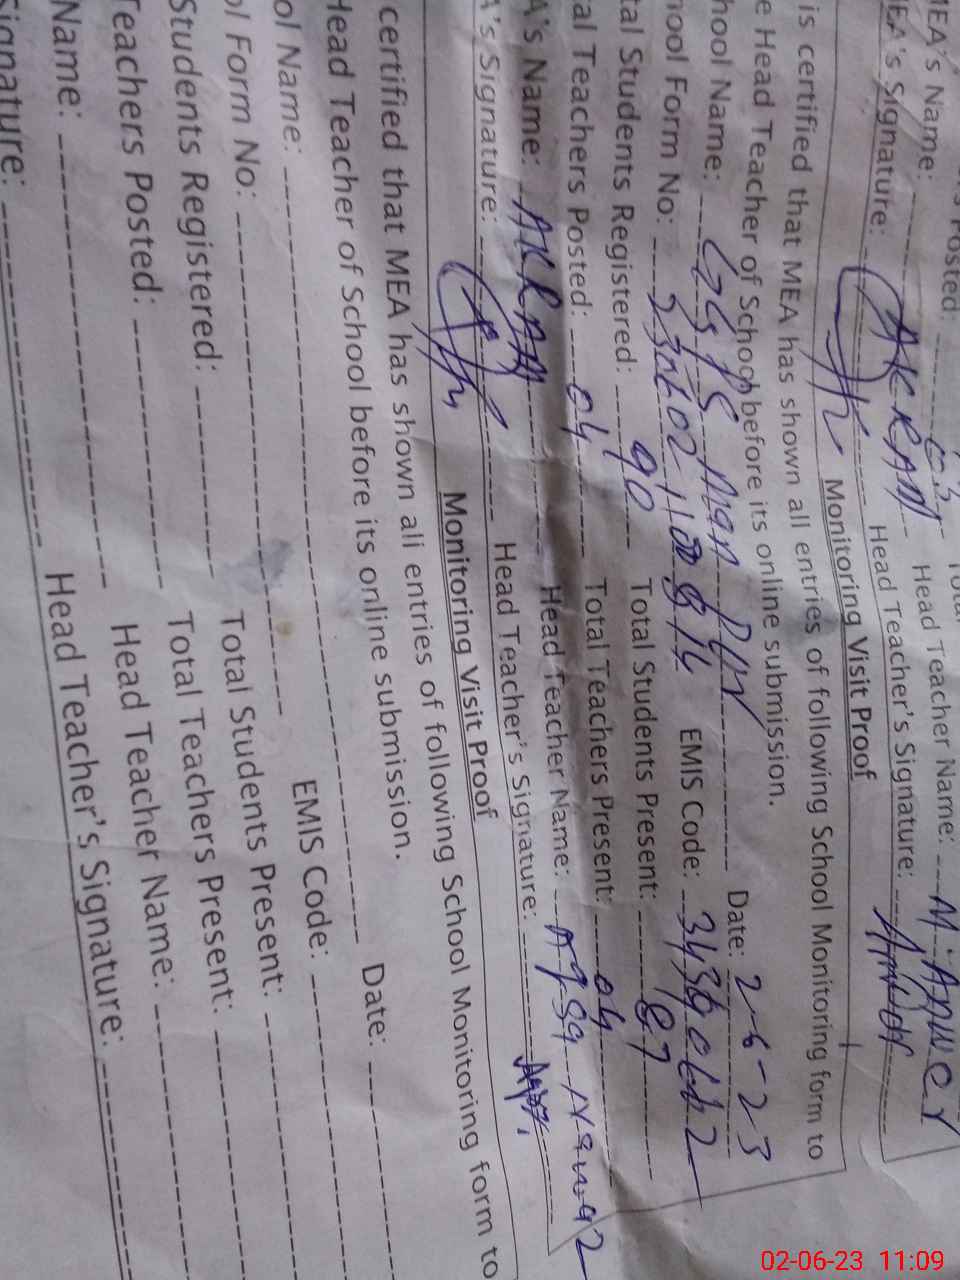 rs Posted: 03 Total
MEA's Name: AKRAM Head Teacher Name: M. Anwer
MEA's Signature: Head Teacher's Signature:
Monitoring Visit Proof
is certified that MEA has shown all entries of following School Monitoring form to
e Head Teacher of School before its online submission.
hool Name: Date: 2-6-23
hool Form No: EMIS Code:
tal Students Registered: 90 Total Students Present: 87
al Teachers Posted: 04 Total Teachers Present: 04
A's Name: AKRAM Head Teacher Name:
A's Signature: Head Teacher's Signature:
Monitoring Visit Proof
certified that MEA has shown all entries of following School Monitoring form to
Head Teacher of School before its online submission.
ol Name: Date:
ol Form No: EMIS Code:
Students Registered: Total Students Present:
Teachers Posted: Total Teachers Present:
Name: Head Teacher Name:
Signature: Head Teacher's Signature:
02-06-23 11:09